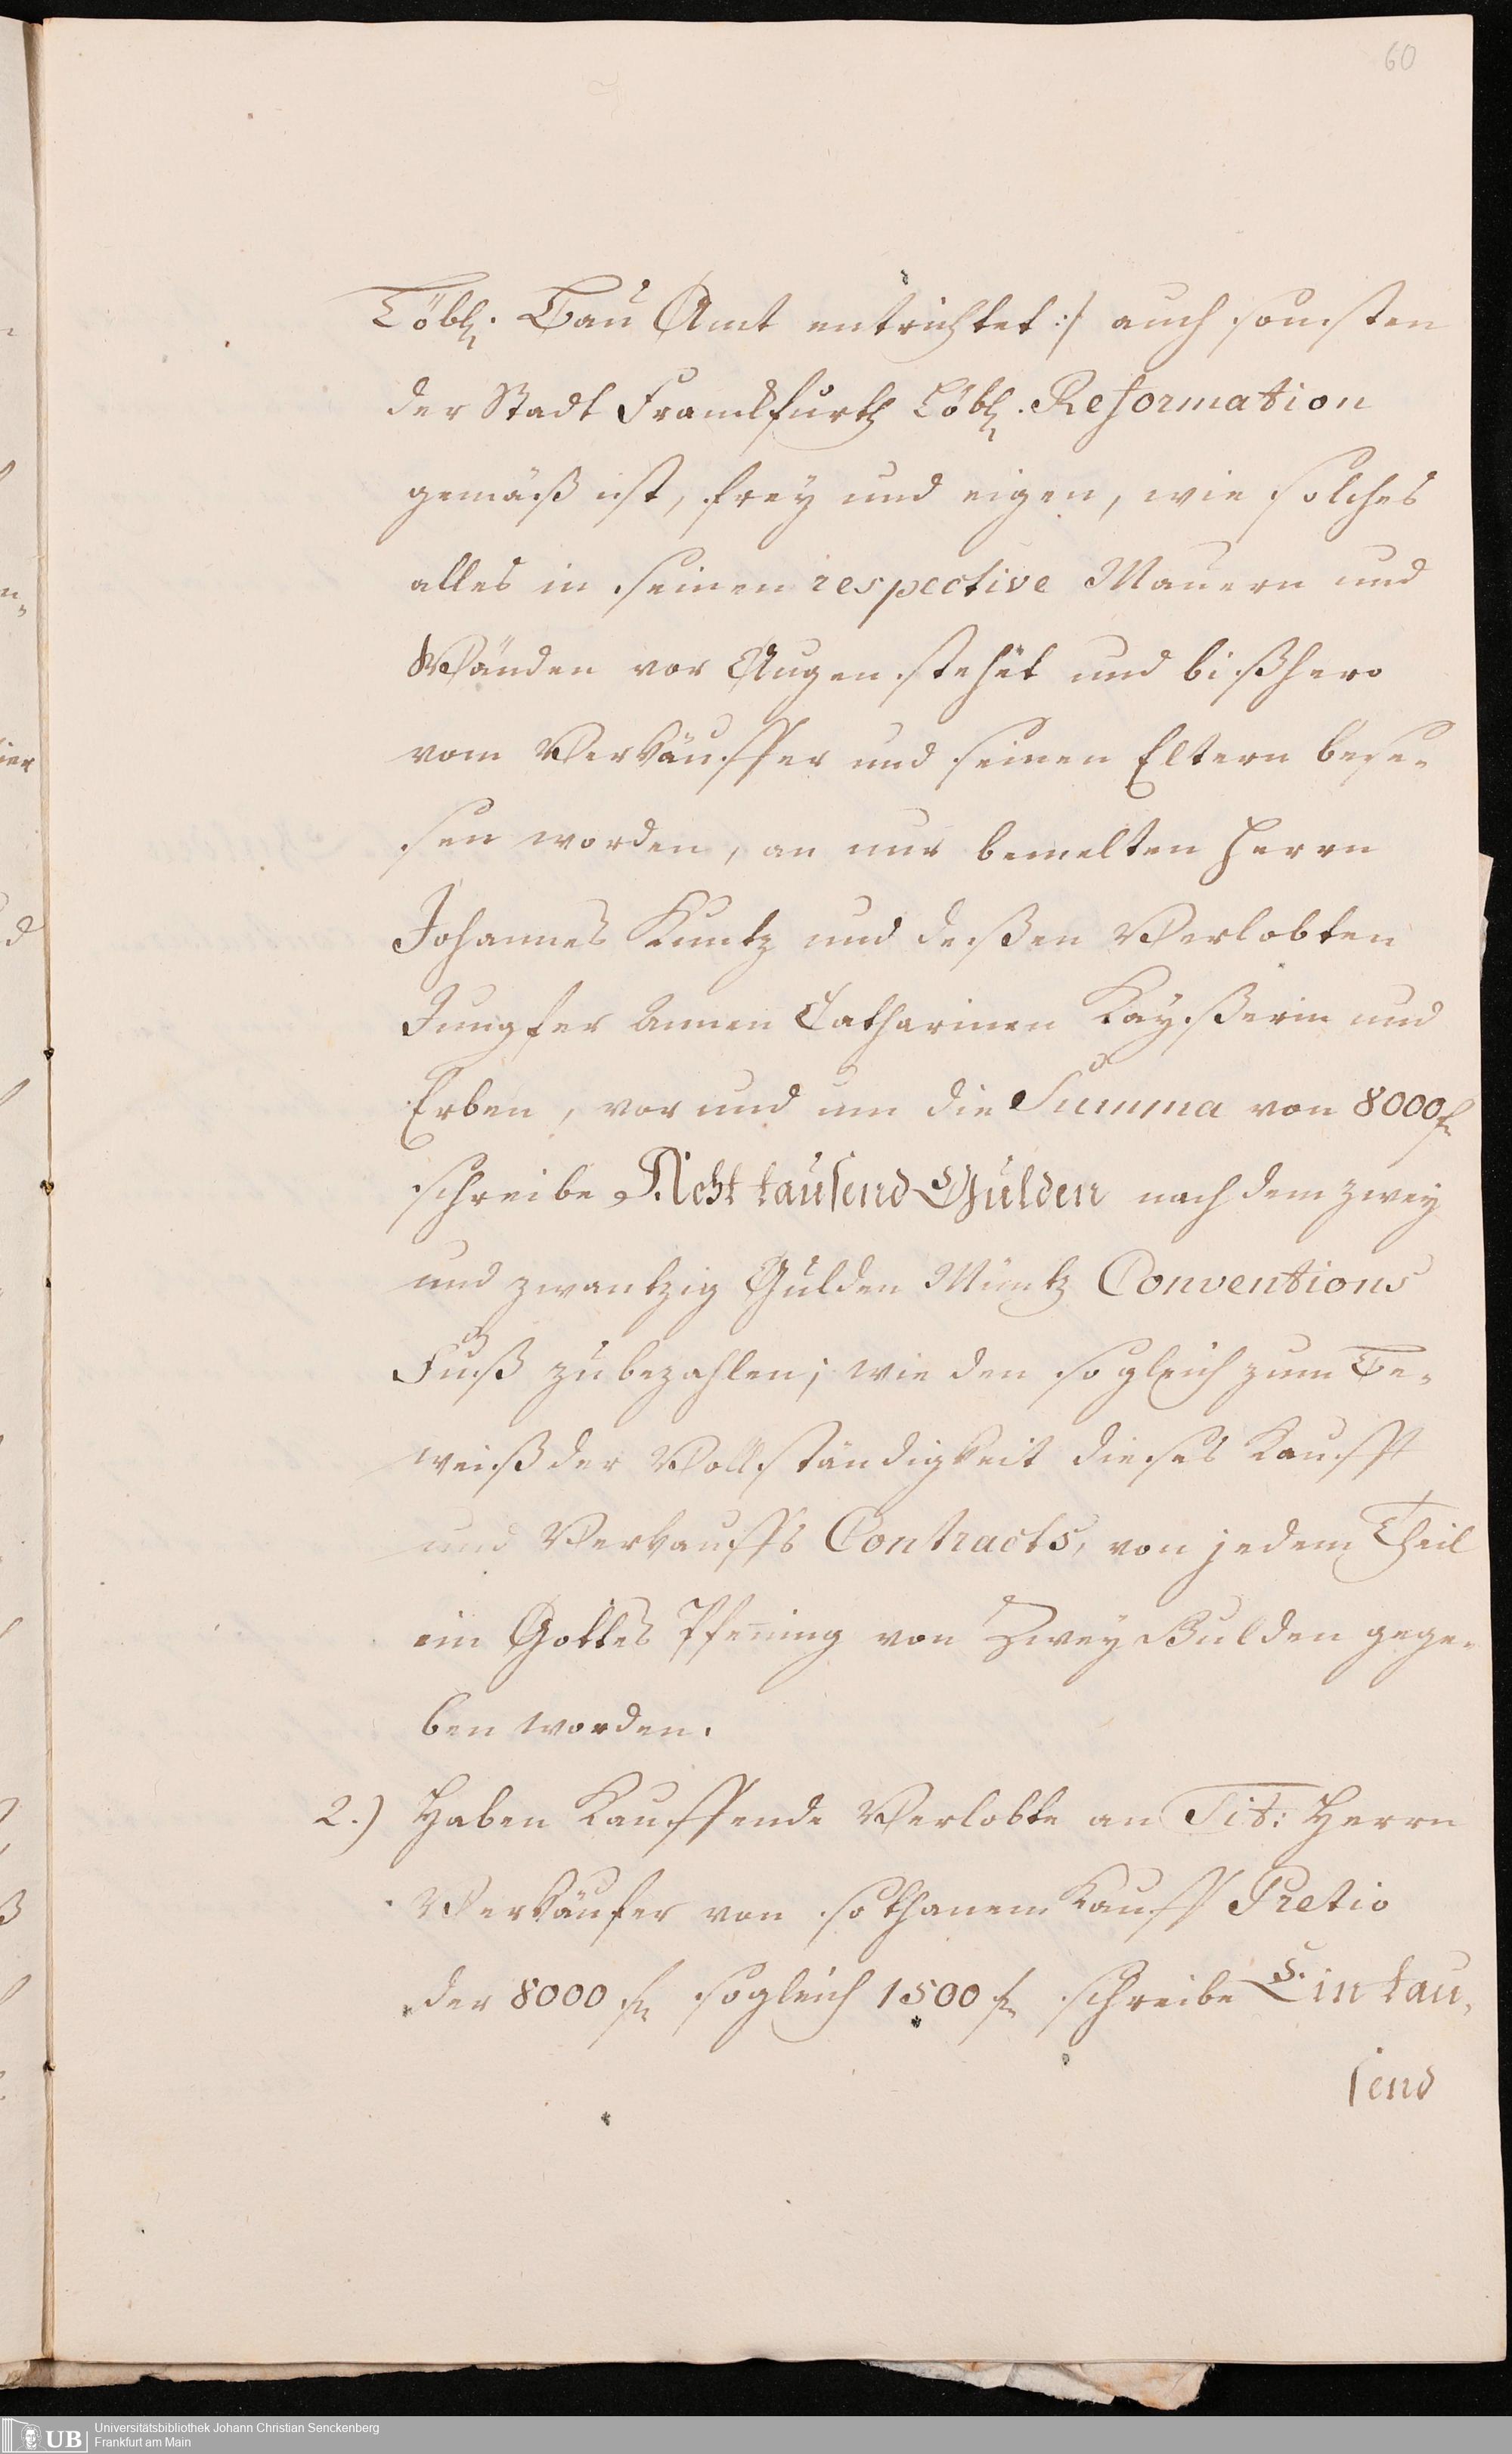 60
Löbl. Bau Amt entrichtet :/ auch sonsten
der Stadt Franckfurth Löbl. Reformation
gemäß ist, frey und eigen, wie solches
alles in seinen respective Mauern und
Wänden vor Augen stehet und bißhero
vom Verkäuffer und seinen Eltern bese-
sen worden, an nur bemelten Herrn
Johannes Kuntz und deßen Verlobten
Jungfer Annen Catharinen Kayßerin und
Erben, vor und um die Summa von 8000 f
schreibe Acht tausend Gulden nach dem zwey
und zwantzig Gulden Müntz Conventions
Fuß zu bezahlen; wie den sogleich zum Be-
weiß der Vollständigkeit dieses Kauffs
und Verkauffs Contracts, von jedem Theil
ein Gottes Pfening von Zwey Gulden gege-
ben worden.
2.) Haben Kauffende Verlobte an Tit: Herrn
Verkäufer von sothanem Kauff Pretio
der 8000 f sogleich 1500 f schreibe Ein tau-
send
UB Universitätsbibliothek Johann Christian Senckenberg
Frankfurt am Main